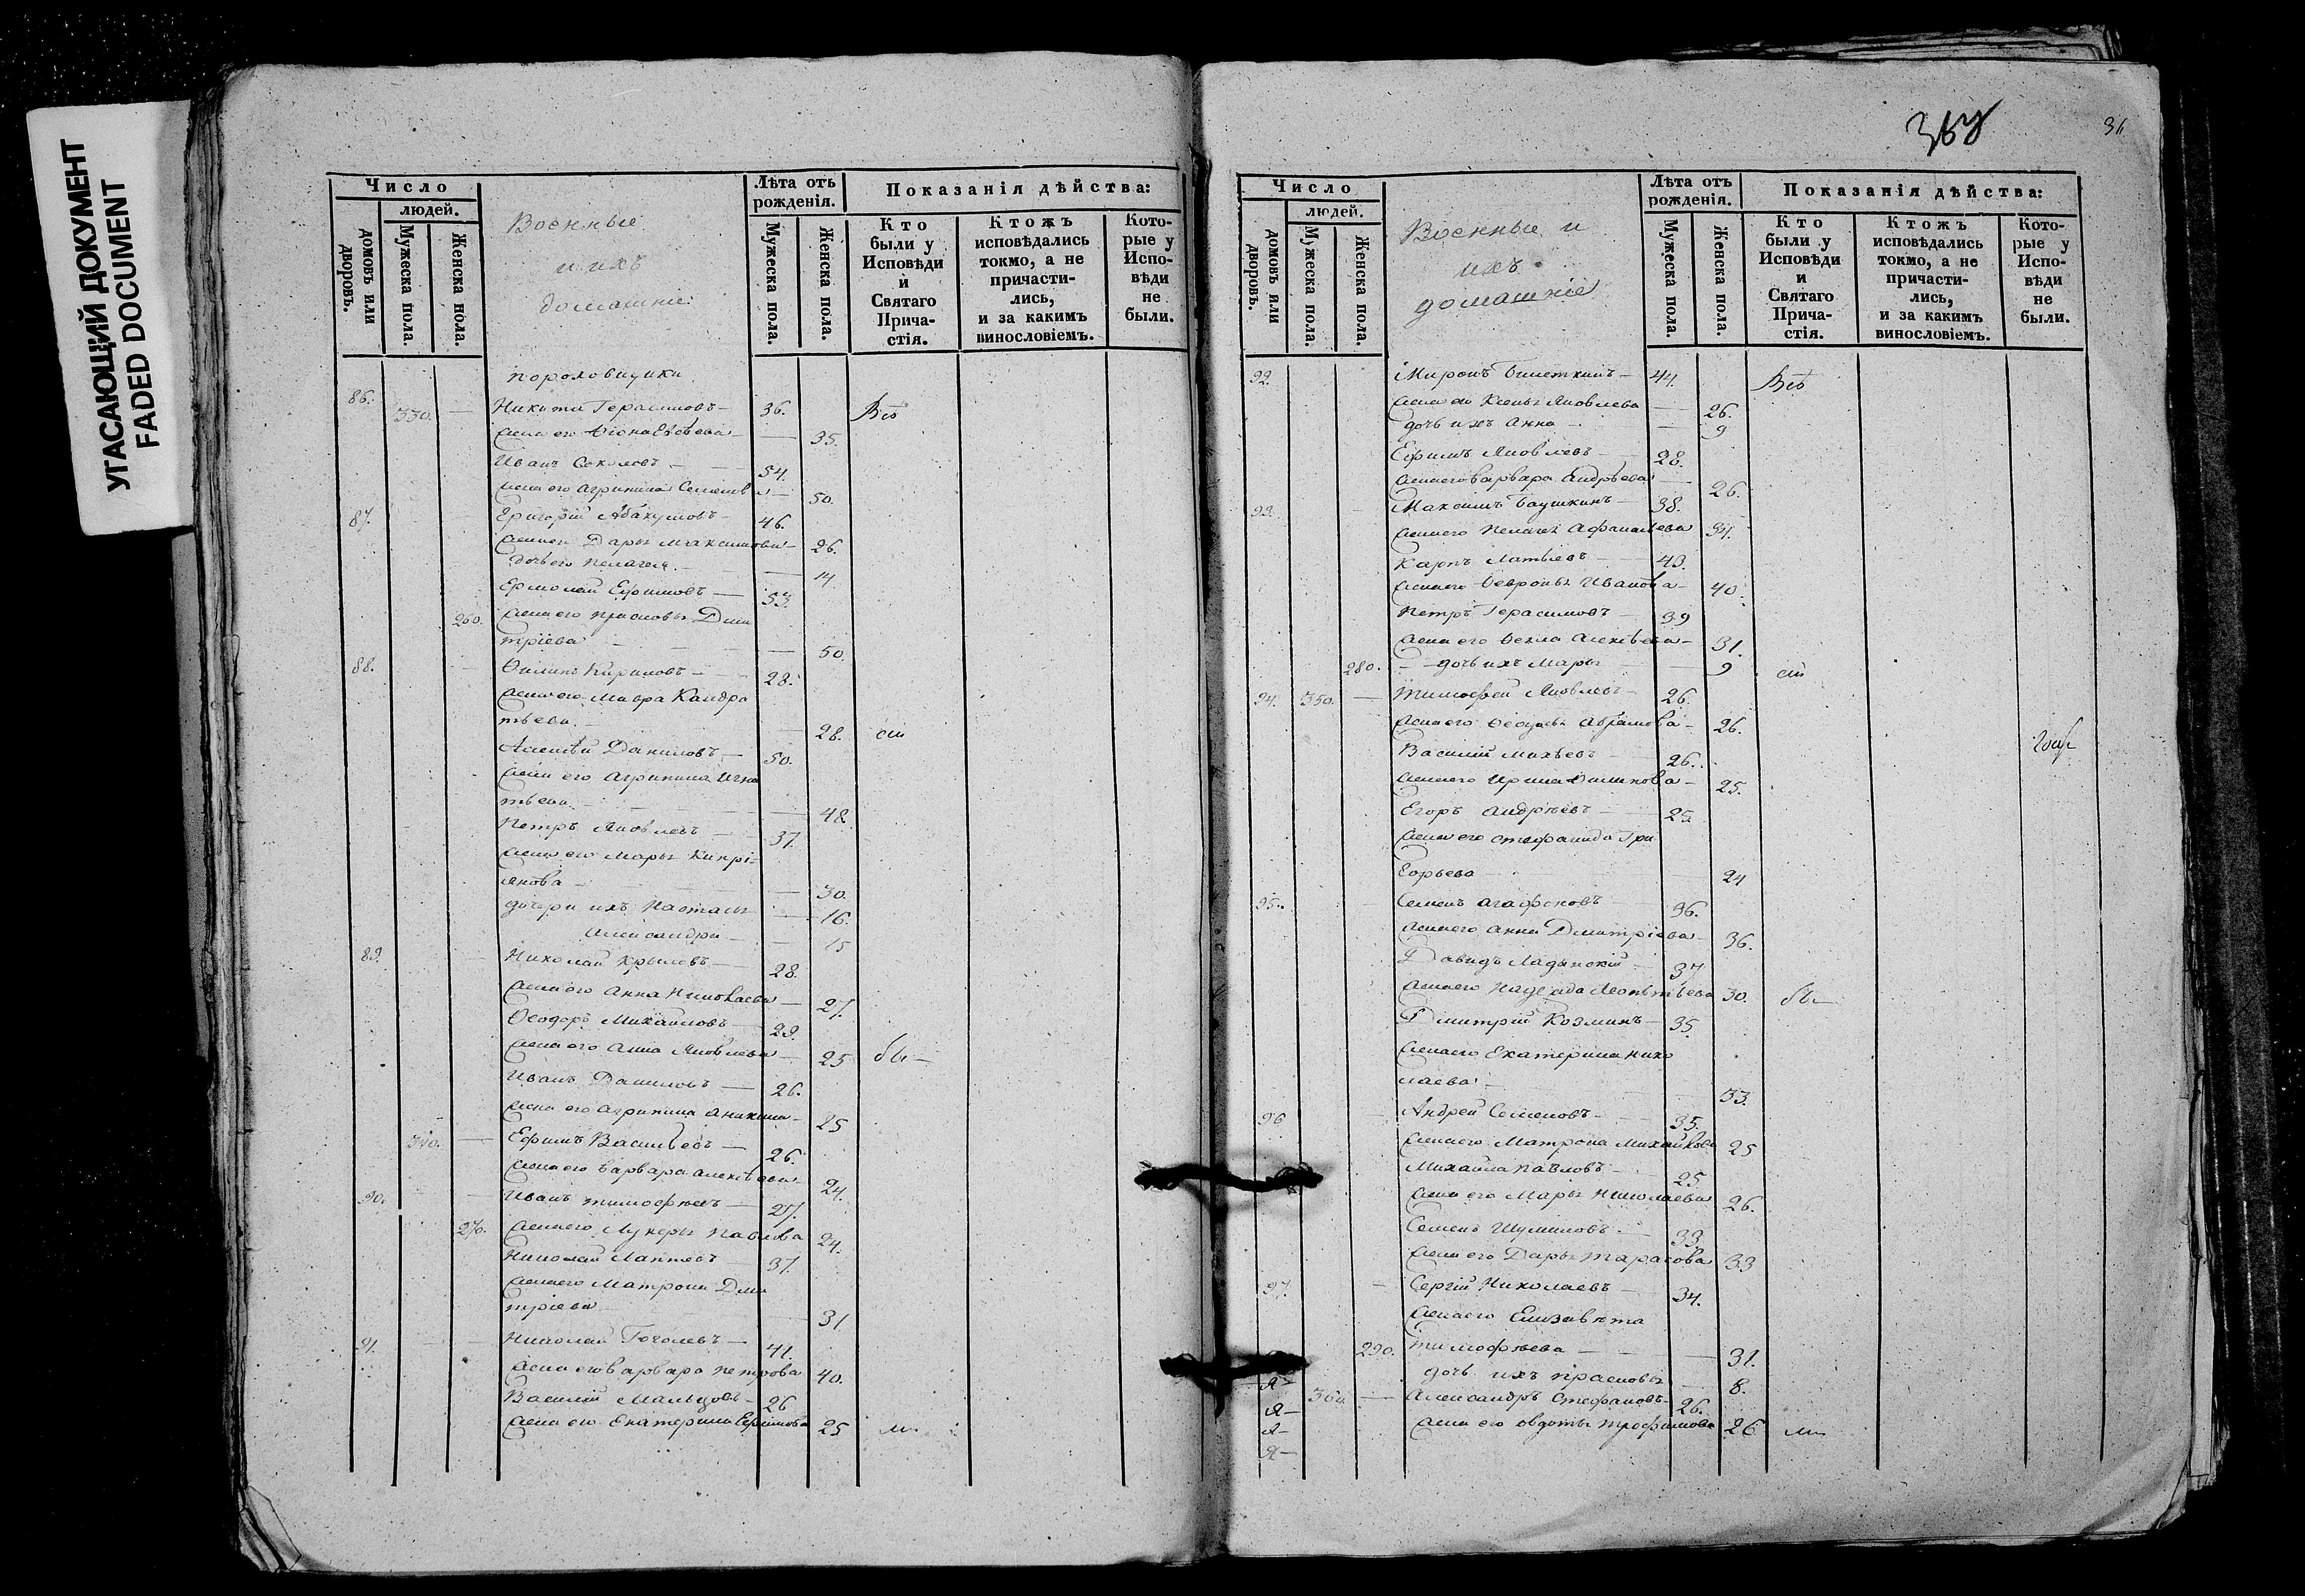 УГАСАЮЩИЙ ДОКУМЕНТ
FADED DOCUMENT
Число
людей.
домовъ или дворовъ.
Мужеска пола.
Женска пола.
Военные
и ихъ
домашніе
Лѣта отъ рожденія.
Мужеска пола.
Женска пола.
Показанія дѣйства:
Кто были у Исповѣди и Святаго Прича-стія.
Ктожъ исповѣдались токмо, а не причасти-лись, и за какимъ винословіемъ.
Кото-рые у Испо-вѣди не были.
пороховщики
86. 330. — Никита Герасимовъ — 36. Всѣ
жена его — 35.
Иванъ Соколовъ — 54.
жена его Агрипина Семенова — 50.
87. Григорій Абакумовъ — 46.
жена его Дарья Максимова — 26.
дочь его Пелагея — 14
Ермолай Ефимовъ — 53.
260. жена его Прасковья Дми
тріева — 50.
88. Филипъ Кириловъ — 28.
жена его Мавра Кандра
тьева — 28. сіи
Алексѣй Даниловъ — 50.
жена его Агрипина Игна
тьева — 48
Петръ Яковлевъ — 37.
жена его Марья Кипрі-
янова — 30.
дочери ихъ Настасья — 16.
Александра — 15
89. Николай Крыловъ — 28.
жена его Анна Николаева — 27.
Ѳеодоръ Михайловъ — 29.
жена его Анна Яковлева — 25 бы—
Иванъ Даниловъ — 26.
жена его Агрипина Аникина — 25
340. — Ефимъ Васильевъ — 26.
жена его Варвара Алексѣева — 24.
90. Иванъ Тимофѣевъ — 27.
270. жена его Лукерья Павлова 24.
Николай Лаптевъ — 37.
жена его Матрона Дми
тріева — 31
91. Николай Гоголевъ — 41.
жена его Варвара Петрова 40.
Василій Мальцовъ — 26
жена его Екатерина Ефимова 25 ли
36
Число
людей.
домовъ или дворовъ.
Мужеска пола.
Женска пола.
Военные и
ихъ
домашніе
Лѣта отъ рожденія.
Мужеска пола.
Женска пола.
Показанія дѣйства:
Кто были у Исповѣди и Святаго Прича-стія.
Ктожъ исповѣдались токмо, а не причасти-лись, и за какимъ винословіемъ.
Кото-рые у Испо-вѣди не были.
92. Миронъ — 44. Всѣ
жена его Ксенья Яковлева — 26.
дочь ихъ Анна — 9
Ефимъ Яковлевъ — 28.
жена его Варвара Андрѣева — 26.
93. Максимъ Баушкинъ — 38.
жена его Пелагея Афанасьева 34.
Карпъ Матвѣевъ — 43.
жена его Ѳевронья Иванова — 40.
Петръ Герасимовъ — 39
жена его Ѳекла Алексѣева — 31.
280. — дочь ихъ Марья — 9 сіи
94. 350. — Тимофей Яковлевъ — 26.
жена его Ѳедосья Абрамова — 26.
Василій Михѣевъ — 26.
жена его Ирина Филипова — 25.
Егоръ Андрѣевъ — 25
жена его Стефанида Гри
горьева — 24
95. Семенъ Агафоновъ — 36.
жена его Анна Дмитріева — 36.
Давидъ Ладынскій — 37
жена его Надежда Леонтьева 30. бы—
Дмитрій Козминъ — 35.
жена его Екатерина Нико
лаева — 33.
96 Андрей Семеновъ — 35.
жена его Матрона Михайлова 25
Михайла Павловъ — 25
жена его Марья Николаева 26.
Семенъ Шумиловъ — 33
жена его Дарья Тарасова 33
97. — Сергій Николаевъ — 34.
жена его Елизавѣта
290. Тимофѣева — 31.
дочь ихъ Прасковья — 8.
— Александръ Стефановъ — 26.
жена его Овдотья Трофимова 26 ли